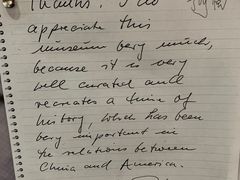 Thanks! I do
appreciate this
museum very much,
because it is very
well curated and
recreates a time of
history, which has been
very important in
the relations between
China and America.